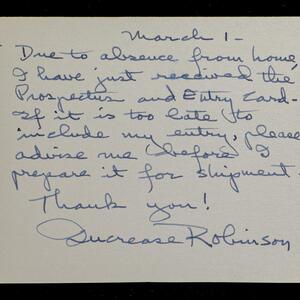 March 1-
Due to absence from home,
I have just received the
Prospectus and Entry Card-
If it is too late to
include my entry, please
advise me before I
prepare it for shipment-
Thank you!
Increase Robinson